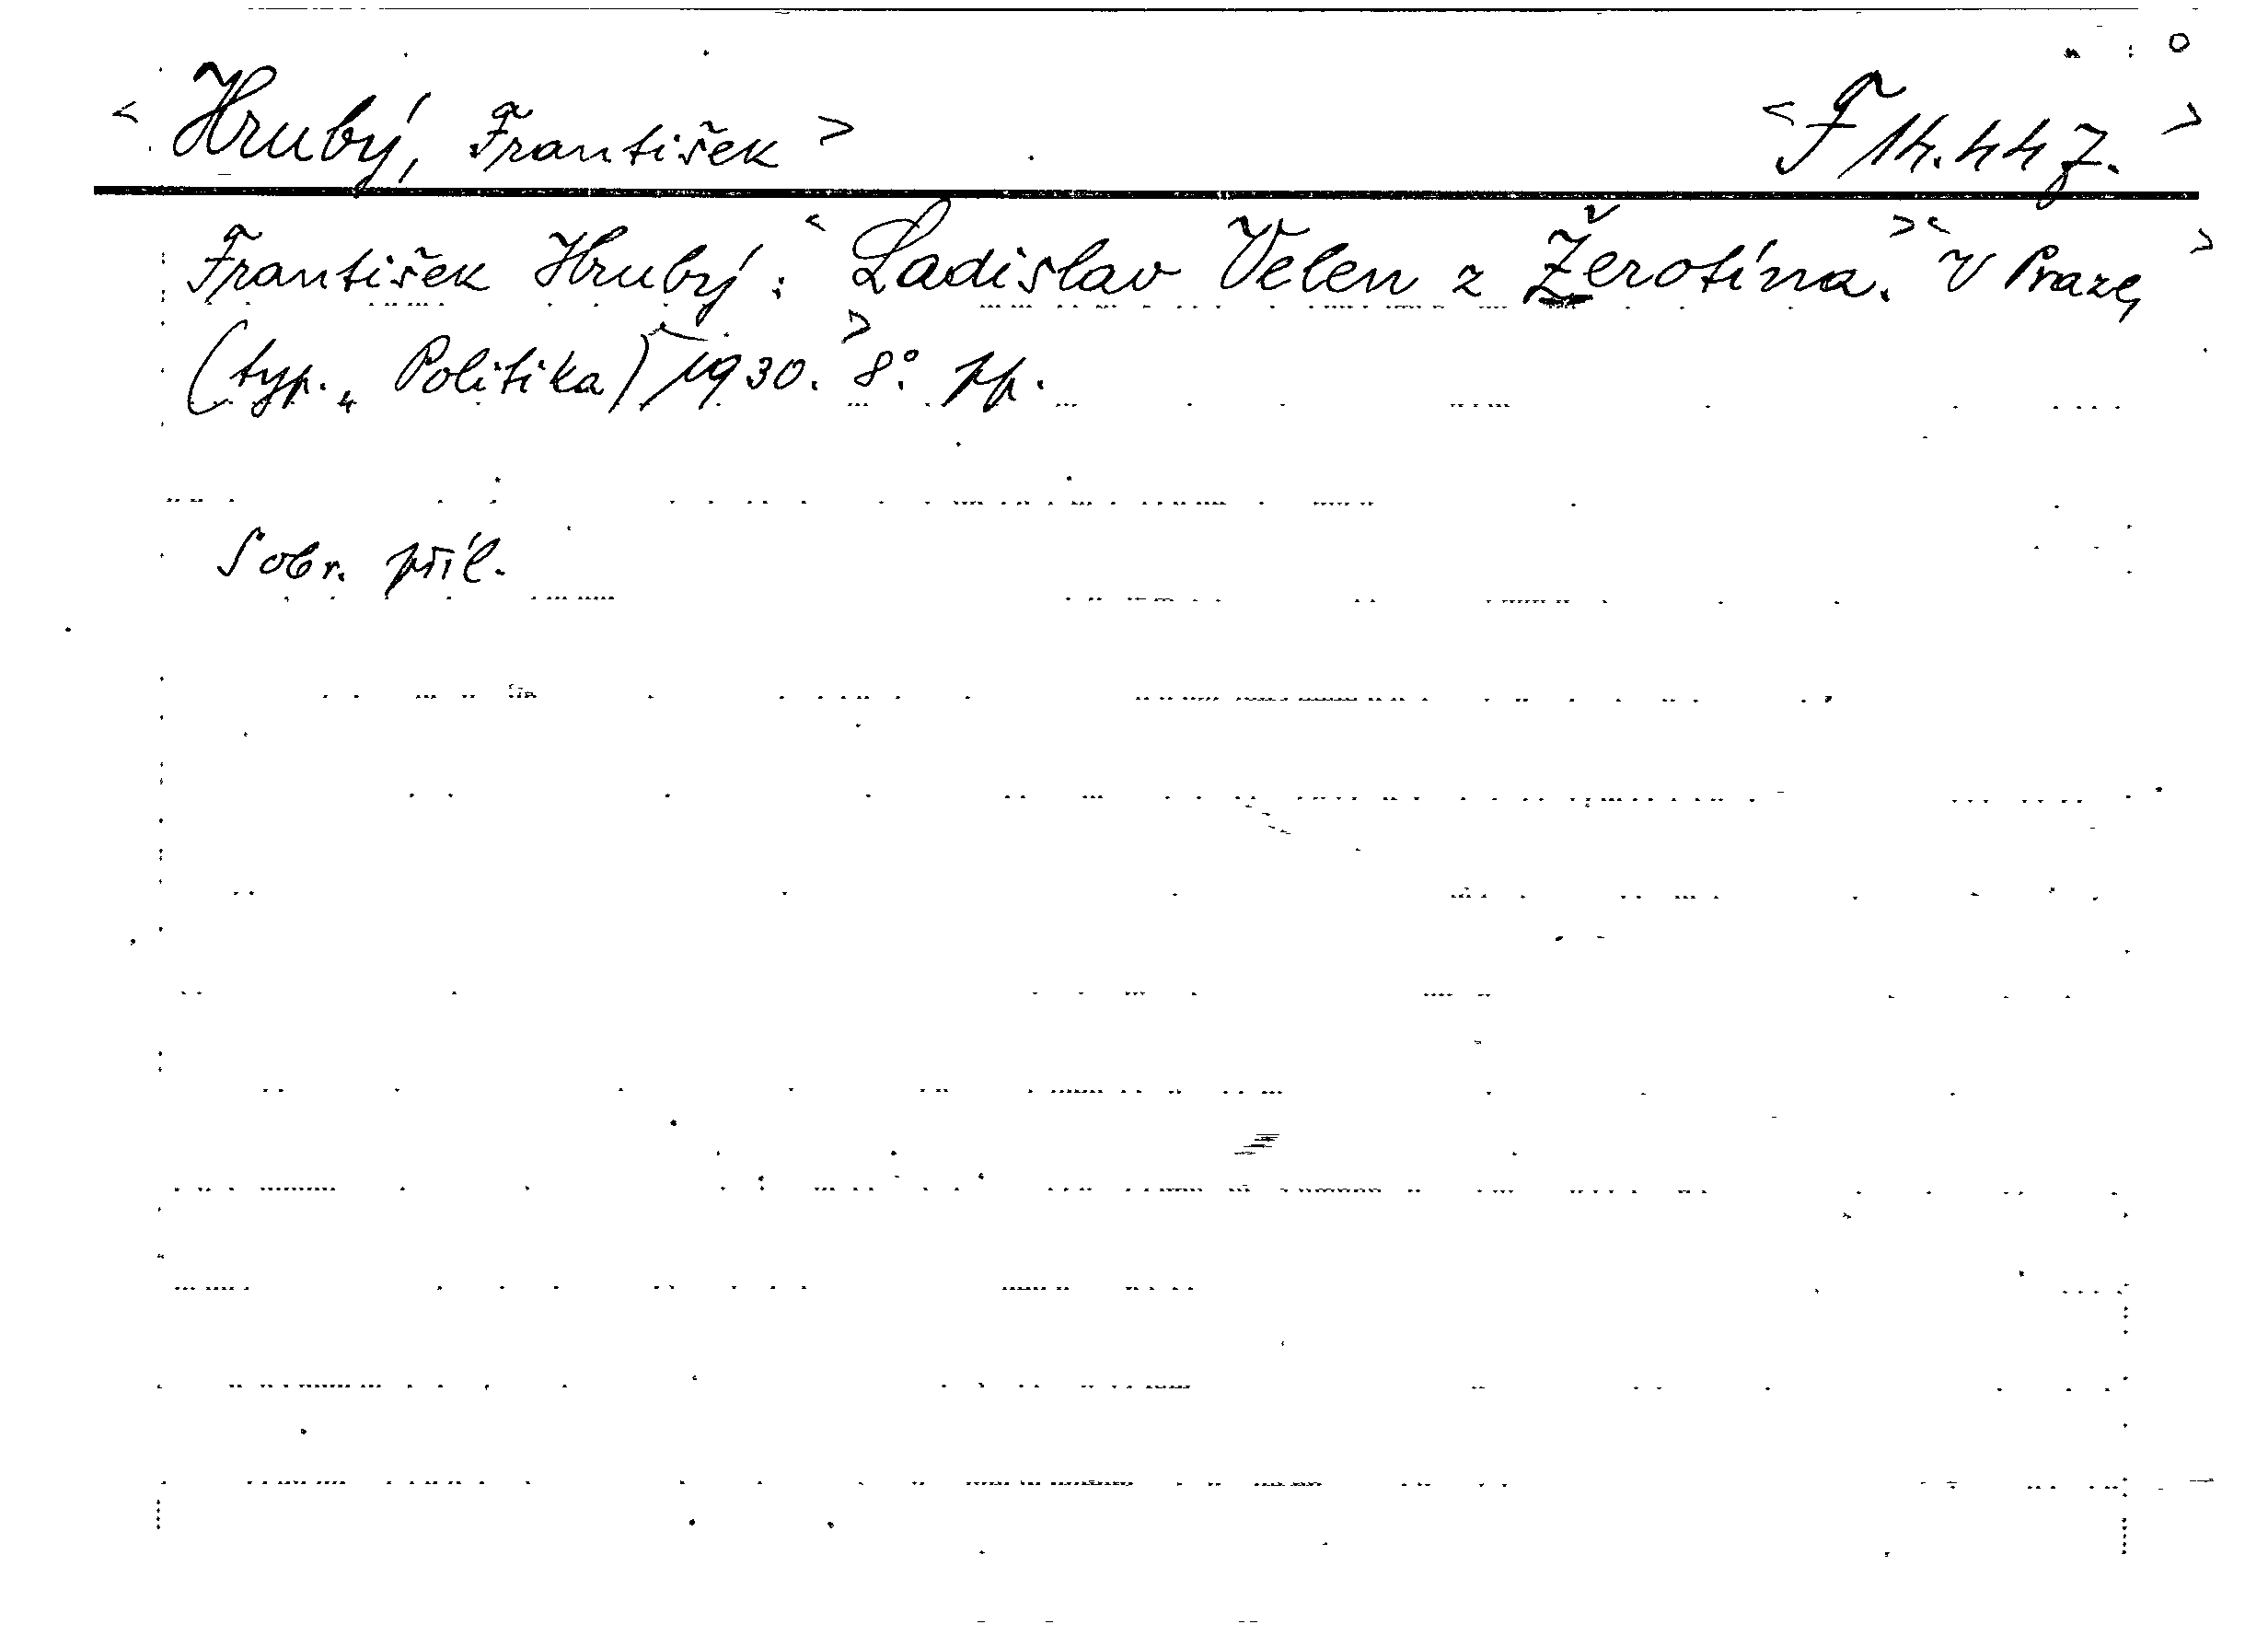 < Hrubý, František > < F 14.447. >
František Hrubý: < Ladislav Velen z Žerotína. > < V Praze, >
(typ. „Politika) < 1930. > 8°. pp.
S obr. příl.